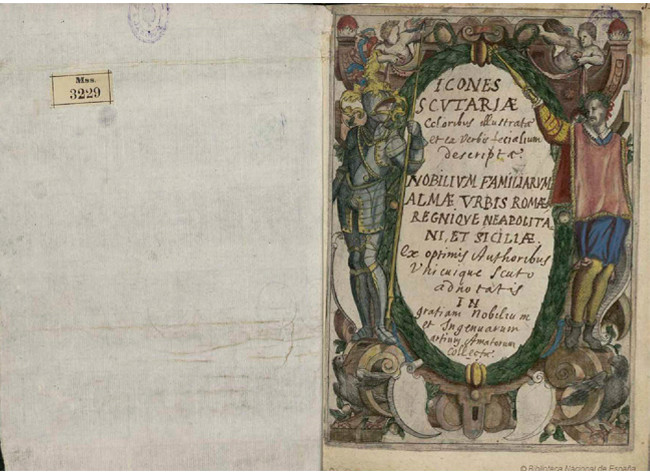 Mss.
3229
ICONES
SCVTARIÆ
Coloribus illustratæ
et ex Verbis fecialium
descriptæ.
NOBILIVM FAMILIARVM
ALMÆ VRBIS ROMÆ
REGNIQVE NEAPOLITA
NI, ET SICILIÆ.
Ex optimis Authoribus
Vnicuique Scuto
adnotatis
IN
gratiam Nobilium
et Ingenuarum
artium Amatorum
Collectæ.
© Biblioteca Nacional de España